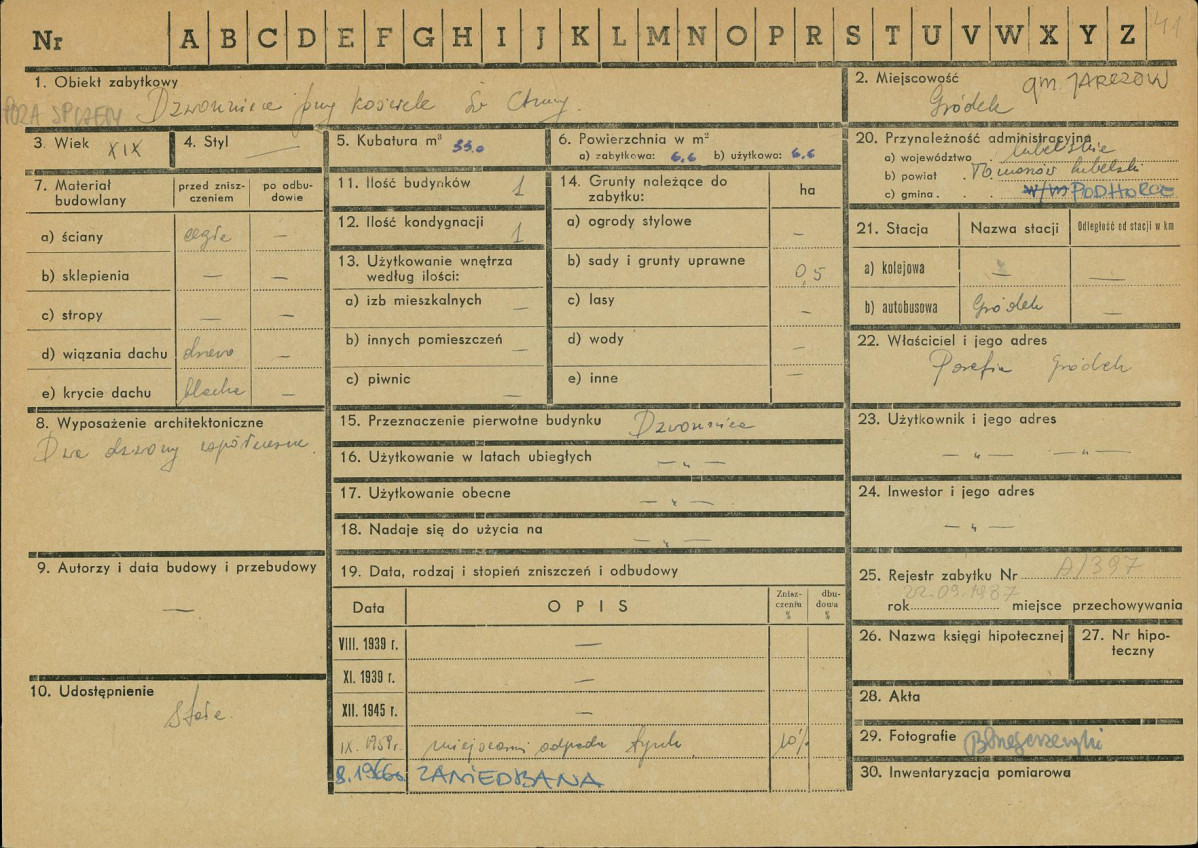 Nr A B C D E F G H I J K L M N O P R S T U V W X Y Z 41
1. Obiekt zabytkowy
POZA SPISEM Dzwonnica przy kościele św Anny.
2. Miejscowość gm. JARCZÓW
Gródek
3. Wiek XIX
4. Styl —
5. Kubatura m³ 33.0
6. Powierzchnia w m²
a) zabytkowa: 6,6 b) użytkowa: 6,6
20. Przynależność administracyjna
a) województwo lubelskie
b) powiat Tomaszów lubelski
c) gmina w/m PODHORCE
7. Materiał budowlany
przed zniszczeniem
po odbudowie
a) ściany cegła —
b) sklepienia — —
c) stropy — —
d) wiązania dachu drewno —
e) krycie dachu blacha —
8. Wyposażenie architektoniczne
Dwa dzwony współczesne.
9. Autorzy i data budowy i przebudowy
—
10. Udostępnienie
Stałe.
11. Ilość budynków 1
12. Ilość kondygnacji 1
13. Użytkowanie wnętrza
według ilości:
a) izb mieszkalnych —
b) innych pomieszczeń —
c) piwnic —
14. Grunty należące do
zabytku:
ha
a) ogrody stylowe —
b) sady i grunty uprawne 0,5
c) lasy —
d) wody —
e) inne —
15. Przeznaczenie pierwotne budynku Dzwonnica
16. Użytkowanie w latach ubiegłych — „ —
17. Użytkowanie obecne — „ —
18. Nadaje się do użycia na — „ —
19. Data, rodzaj i stopień zniszczeń i odbudowy
Data OPIS Zniszczeniu % dbudowa %
VIII. 1939 r. —
XI. 1939 r. —
XII. 1945 r. —
IX. 1959 r. miejscami odpada tynk. 10%
8. 1966 ZANIEDBANA
21. Stacja Nazwa stacji Odległość od stacji w km
a) kolejowa — —
b) autobusowa Gródek —
22. Właściciel i jego adres
Parafia Gródek
23. Użytkownik i jego adres
— „ — — „ —
24. Inwestor i jego adres
— „ —
25. Rejestr zabytku Nr A/397
22.09.1987
rok miejsce przechowywania
26. Nazwa księgi hipotecznej
27. Nr hipoteczny
28. Akta
29. Fotografie
30. Inwentaryzacja pomiarowa